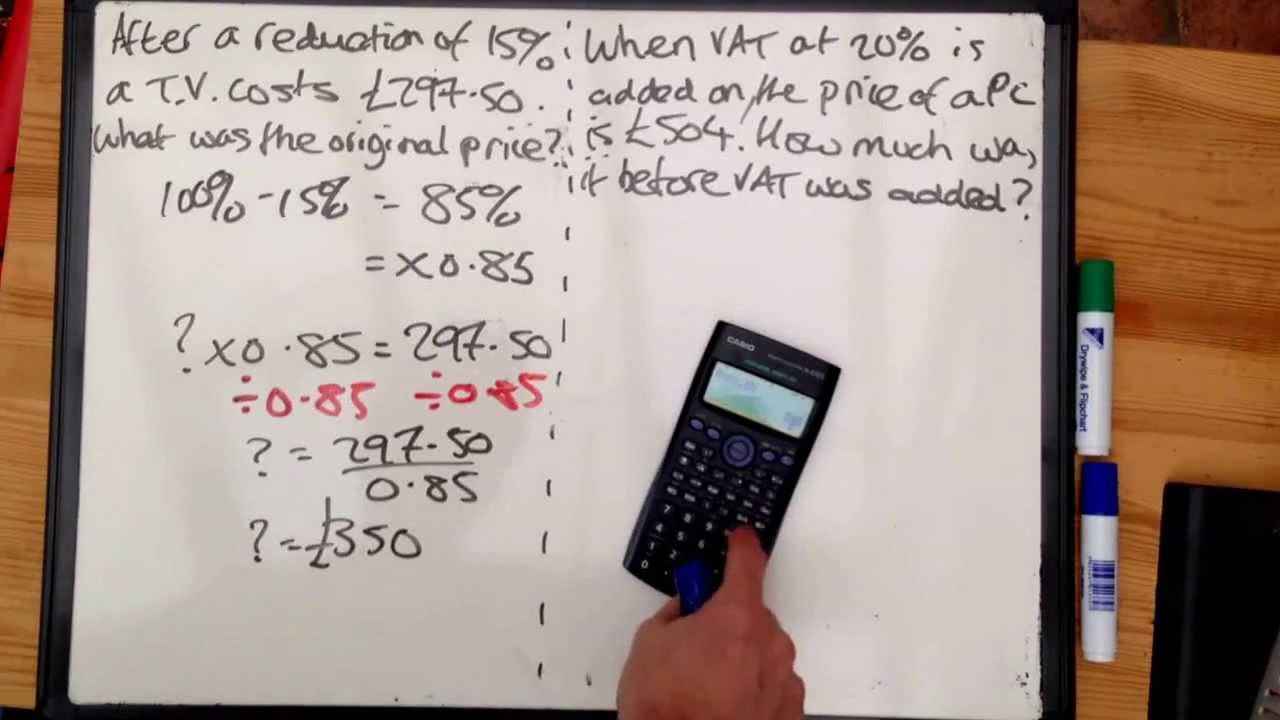 After a reduction of 15%
a T.V. costs £297.50.
What was the original price?
100% - 15% = 85%
= ×0.85
? ×0.85 = 297.50
÷0.85 ÷0.85
? = 297.50
0.85
? = £350
When VAT at 20% is
added on, the price of a PC
is £504. How much was
it before VAT was added?
CASIO
7 8 9
4 5 6
1 2
0 .
Drywipe & Flipchart